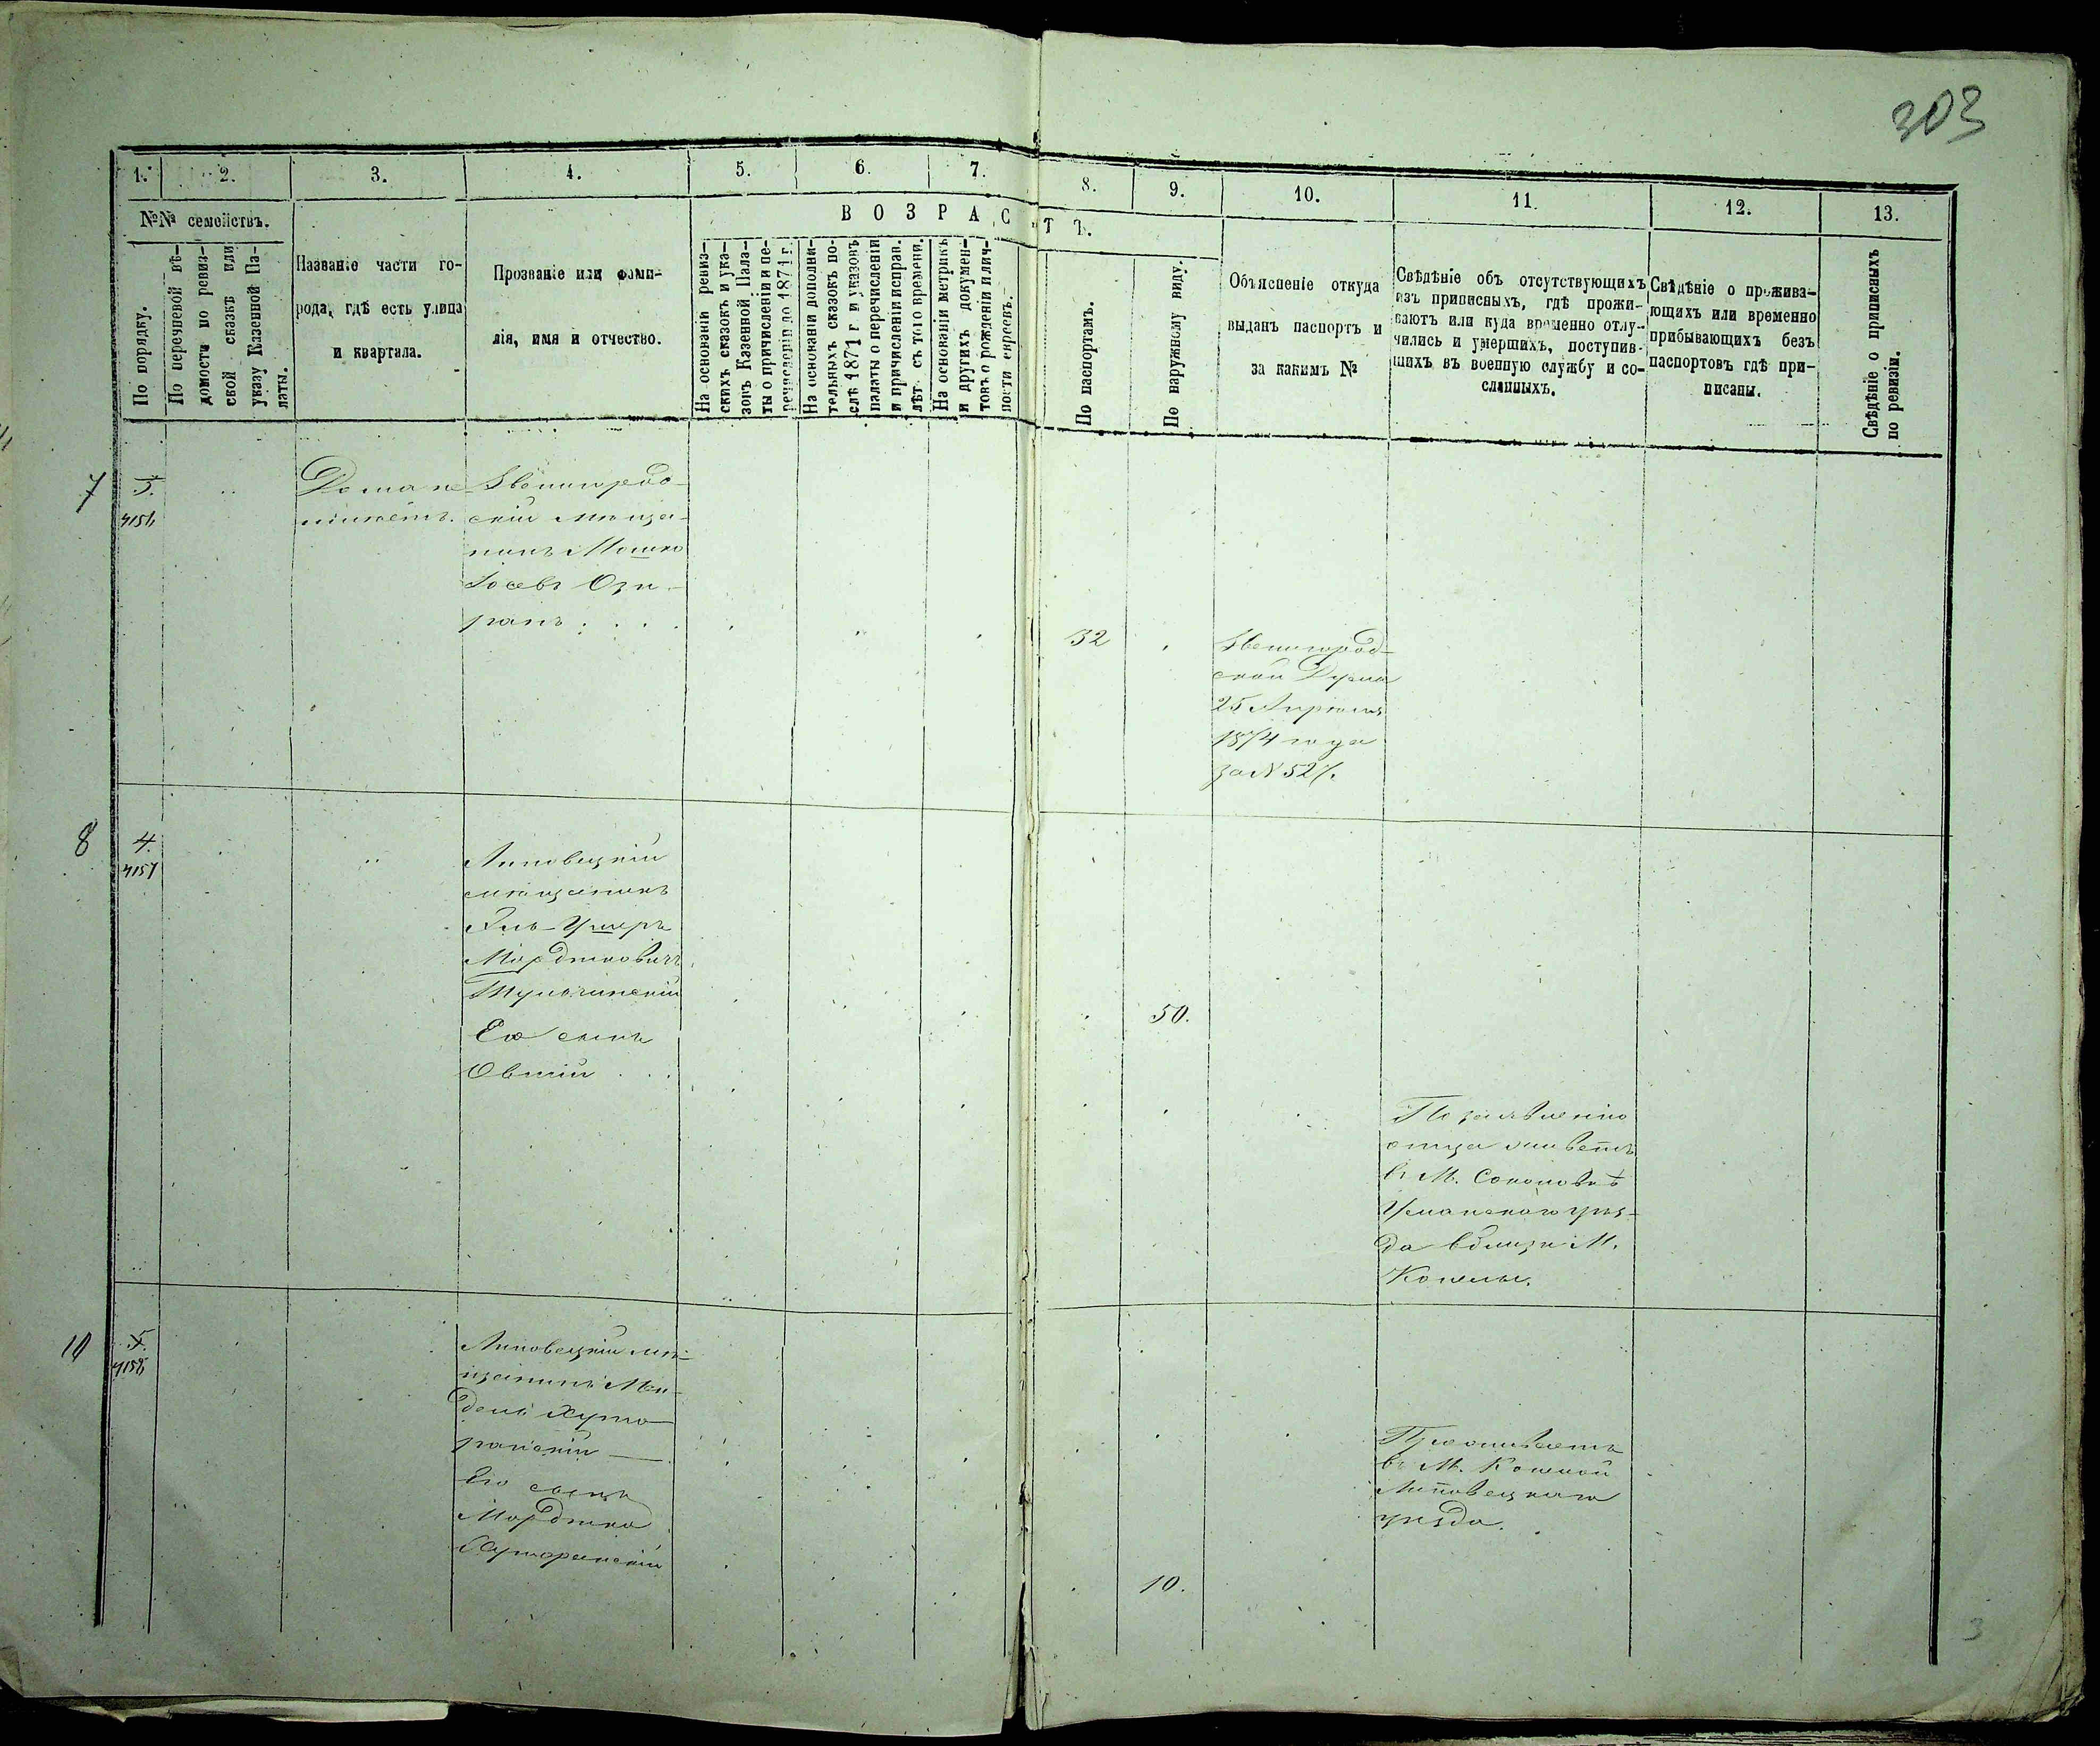 303
1. 2. 3. 4. 5. 6. 7. 8. 9. 10. 11. 12. 13.
№№ семействъ.
По порядку.
По перечневой вѣ-
домости по ревиз-
ской сказкѣ или
указу Казенной Па-
латы.
Названіе части го-
рода, гдѣ есть улица
и квартала.
Прозваніе или фами-
лія, имя и отчество.
ВОЗРАСТЪ.
На основаніи ревиз-
скихъ сказокъ и ука-
зовъ Казенной Пала-
ты о причисленіи и пе-
речисленіи до 1871 г.
На основаніи дополни-
тельныхъ сказокъ по-
слѣ 1871 г. и указовъ
палаты о перечисленіи
и причисленіи исправ.
лѣт. съ того времени.
На основаніи метрикъ
и другихъ докумен-
товъ о рожденіи и лич-
ности евреевъ.
По паспортамъ.
По наружному виду.
Объясненіе откуда
выданъ паспортъ и
за какимъ №
Свѣдѣніе объ отсутствующихъ
изъ приписныхъ, гдѣ прожи-
ваютъ или куда временно отлу-
чились и умершихъ, поступив-
шихъ въ военную службу и со-
сланныхъ.
Свѣдѣніе о прожива-
ющихъ или временно
прибывающихъ безъ
паспортовъ гдѣ при-
писаны.
Свѣдѣніе о приписныхъ
по ревизіи.
7
Дома не
имѣетъ.
Звенигород-
скій мѣща-
нинъ Мошко
Іосевъ Ози-
ранъ
32
Звенигород-
ской Думы
25 Апрѣля
1874 года
за N 527.
8
4.
4157
Липовецкій
мѣщанинъ
Эль-Ушеръ
Мордковичъ
Тульчинскій
50.
Его сынъ
Овшій
По заявленію
отца живетъ
въ М. Соколовкѣ
Уманскаго уѣз-
да вблизи М.
10
5.
4158
Липовецкій мѣ-
щанинъ Мен-
дель Хуто-
ранскій
Его сынъ
Мордко
Хуторанскій
Проживаетъ
въ М.
Липовецкаго
уѣзда.
10.
3